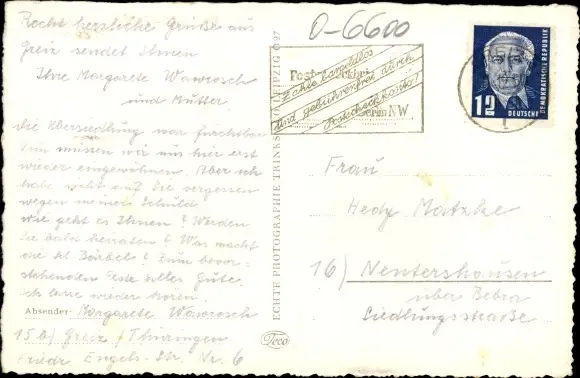 Recht herzliche Grüße aus
Greiz sendet Ihnen
Ihre Margarete Wawrosch
und Mutter.
die Übersiedlung war furchtbar
Nun müssen wir uns hier erst
wieder eingewöhnen. Aber ich
habe nicht auf Sie vergessen
wegen meiner Schuld
wie geht es Ihnen? Werden
Sie bald heiraten? Was macht
die kl. Bärbel? Zum bevor-
stehenden Feste alles Gute.
ich lasse wieder hören.
Absender: Margarete Wawrosch
15b) Greiz / Thüringen
Friedr. Engels-Str. Nr. 6
ECHTE PHOTOGRAPHIE TRINKS LEIPZIG O 27
Teco
O-6600
Zahle bargeldlos
und gebührenfrei durch
Postscheckkonto!
Post
Berlin NW
12
DEUTSCHE
DEMOKRATISCHE REPUBLIK
Frau
Hedy Matzke
16) Nentershausen
über Bebra
Siedlungsstraße